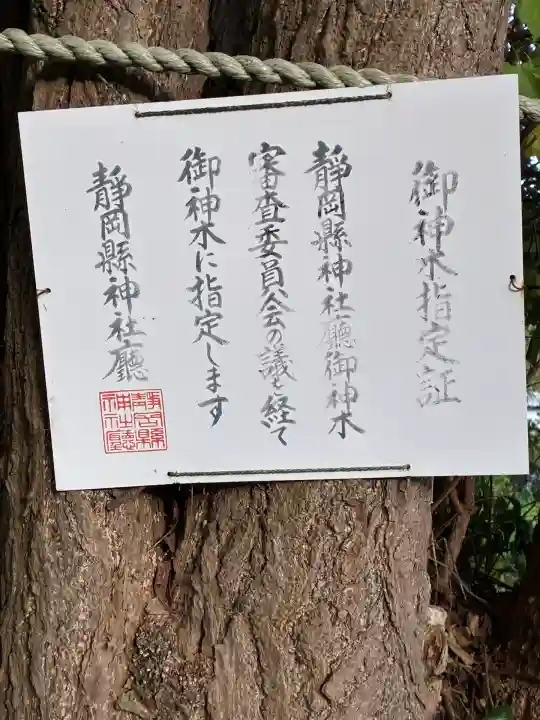 御神木指定証
静岡縣神社廳御神木
審査委員会の議を経て
御神木に指定します
静岡縣神社廳
静岡縣神社廳